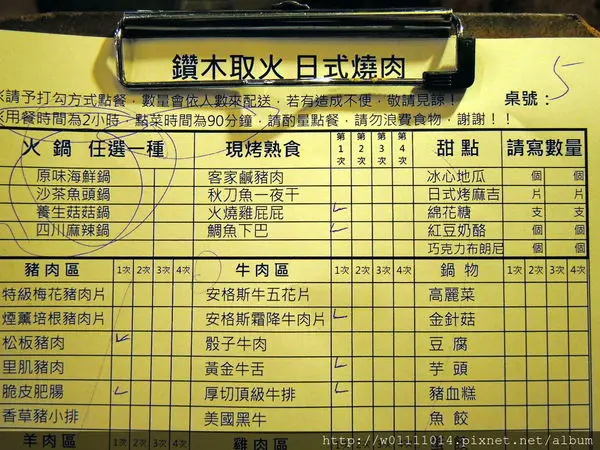 鑽木取火 日式燒肉
※請予打勾方式點餐，數量會依人數來配送，若有造成不便，敬請見諒！ 桌號： 5
※用餐時間為2小時，點菜時間為90分鐘，請酌量點餐，請勿浪費食物，謝謝！！
火 鍋 任選一種 現烤熟食 第1次 第2次 第3次 第4次 甜 點 請寫數量
原味海鮮鍋 客家鹹豬肉 冰心地瓜 個 個
沙茶魚頭鍋 秋刀魚一夜干 日式烤麻吉 片 片
養生菇菇鍋 火燒雞屁屁 綿花糖 支 支
四川麻辣鍋 鯛魚下巴 紅豆奶酪 個 個
巧克力布朗尼 個 個
豬肉區 1次 2次 3次 4次 牛肉區 1次 2次 3次 4次 鍋 物 1次 2次 3次 4次
特級梅花豬肉片 安格斯牛五花片 高麗菜
煙薰培根豬肉片 安格斯霜降牛肉片 金針菇
松板豬肉 骰子牛肉 豆 腐
里肌豬肉 黃金牛舌 芋 頭
脆皮肥腸 厚切頂級牛排 豬血糕
香草豬小排 美國黑牛 魚 餃
羊肉區 1次 2次 3次 4次 雞肉區 1次 2次 3次 4次
http://w01111014.pixnet.net/album